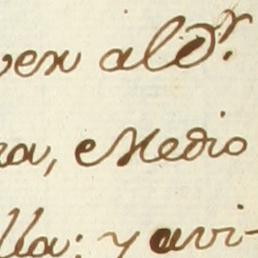 ver al Dr.
ra, e Medio
lla: y avi-